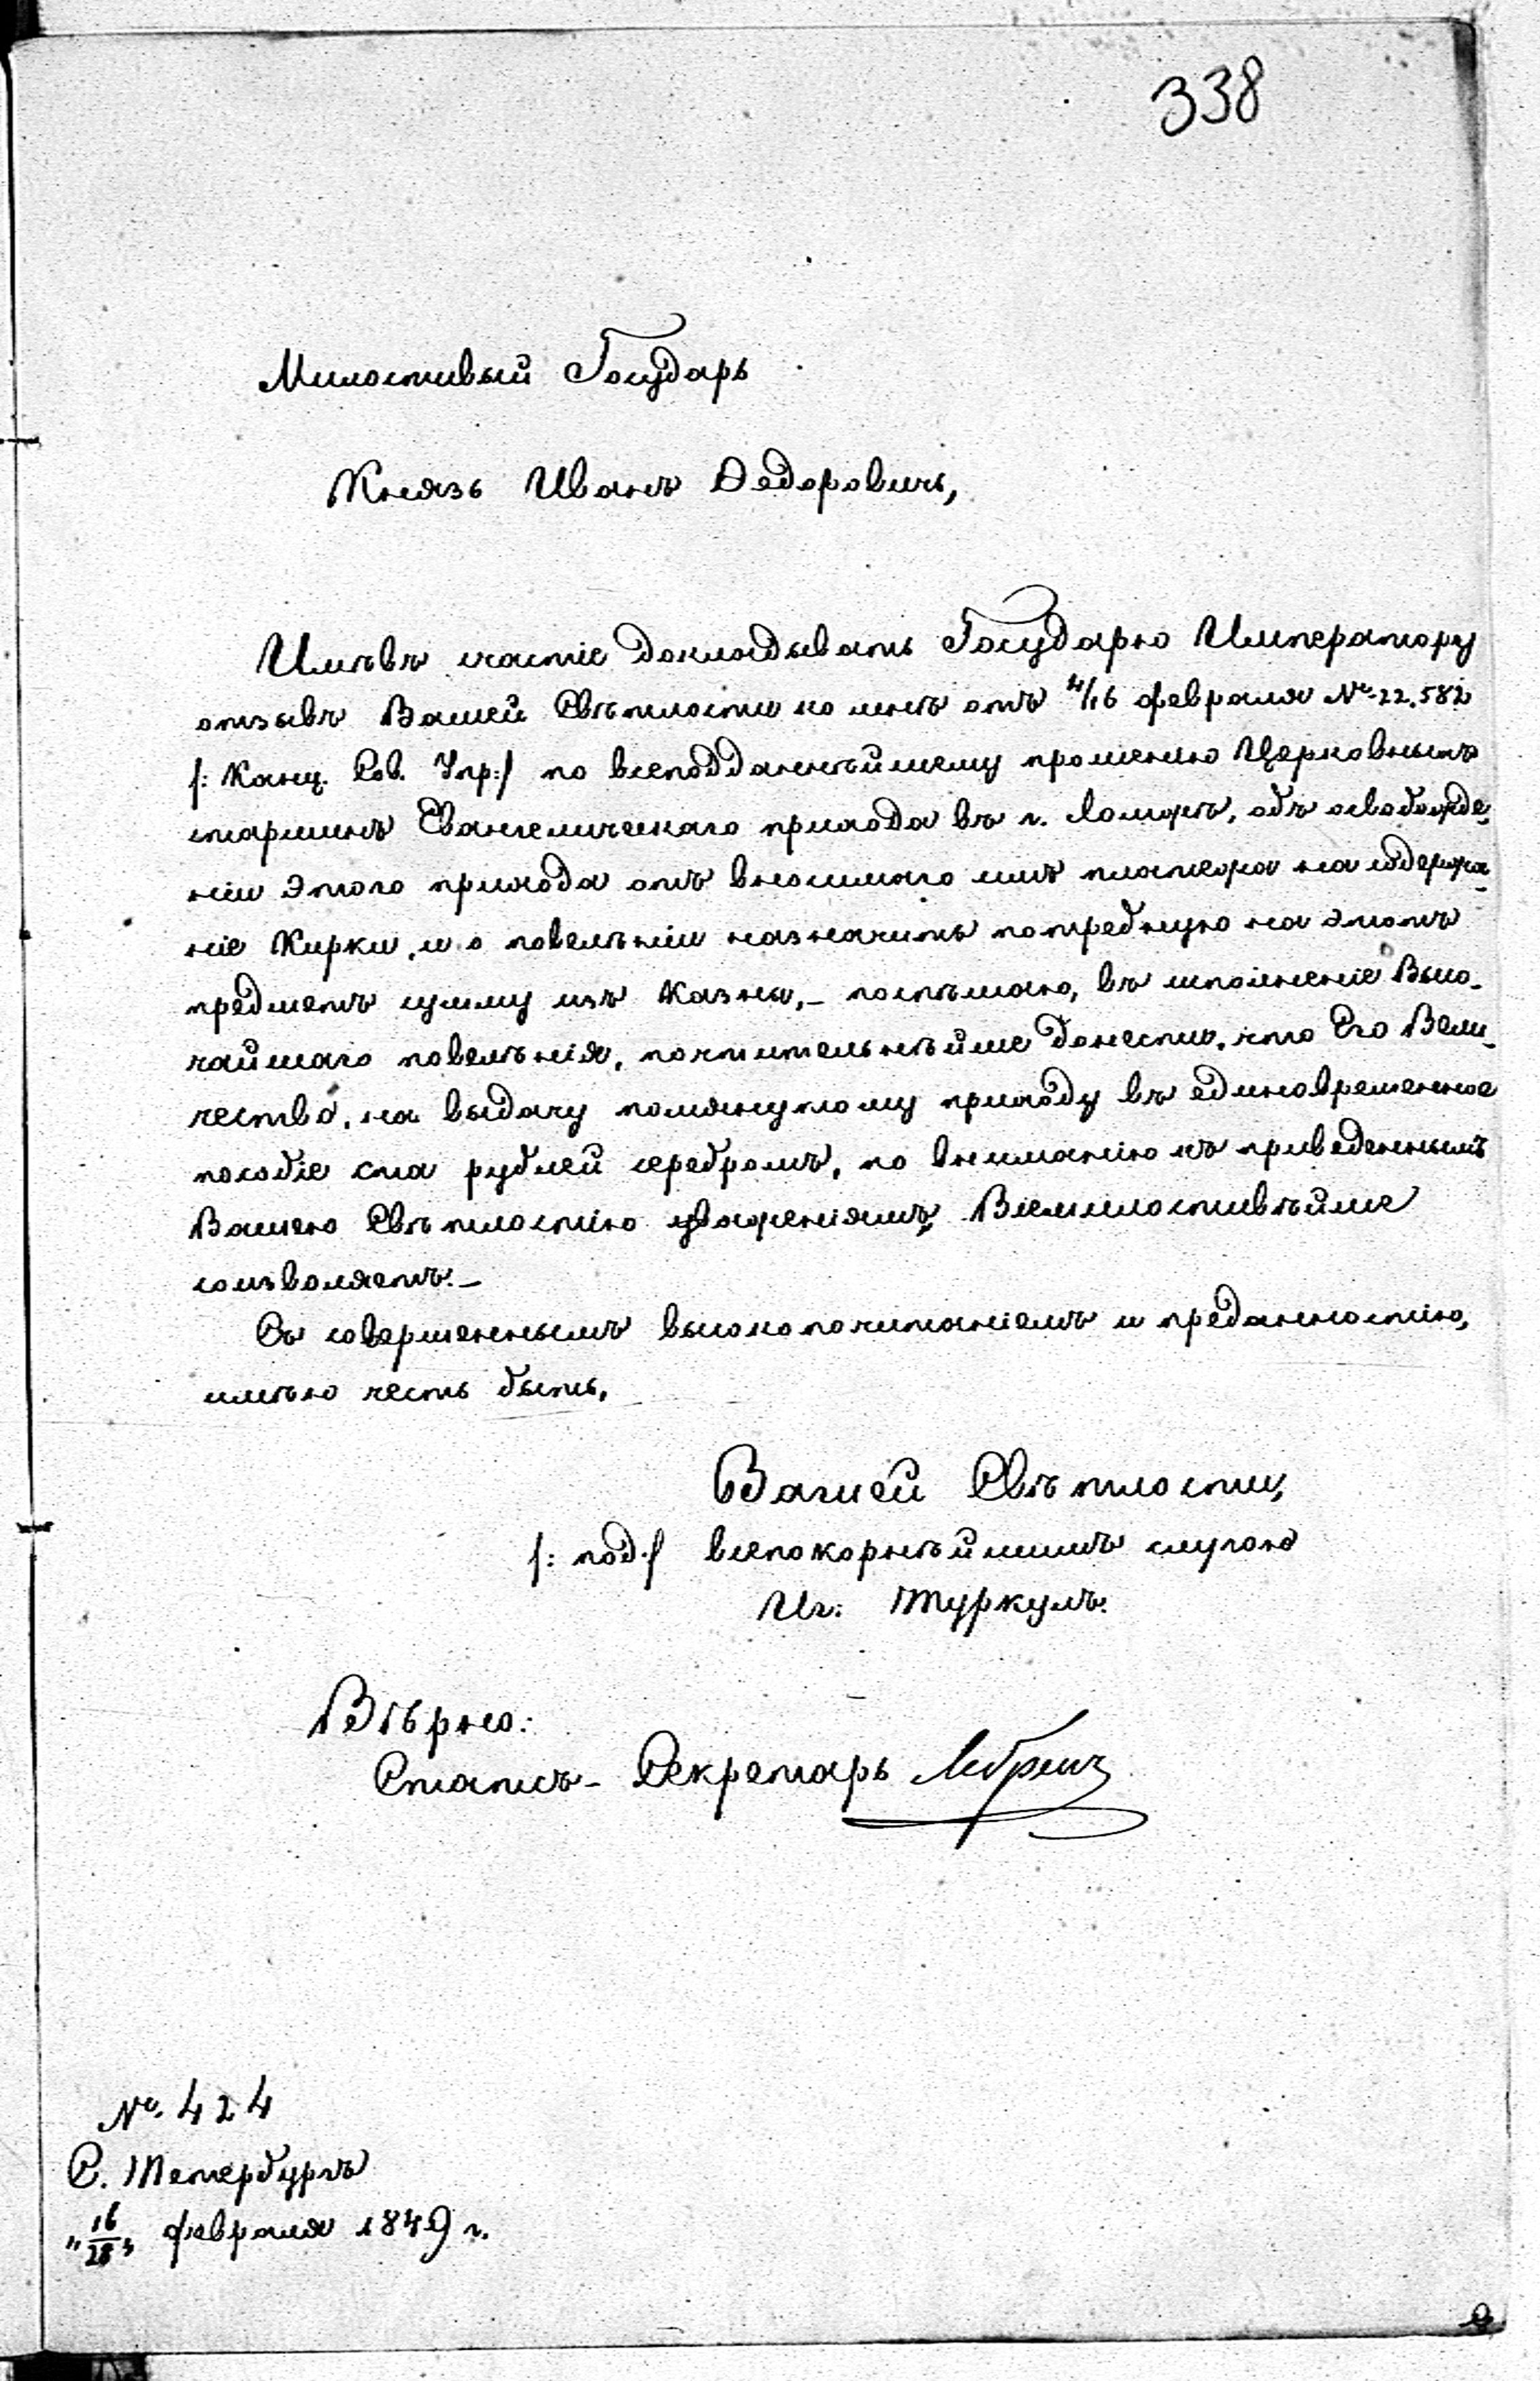 338
Милостивый Государь
Князь Иванъ Ѳедоровичъ,
Имѣвъ счастіе докладывать Государю Императору
отзывъ Вашей Свѣтлости ко мнѣ отъ 4/16 февраля №. 22.582
/: Канц. Сов. Упр:/ по всеподданнѣйшему прошенію Церковныхъ
старшинъ Евангелическаго прихода въ г. Ломжѣ, объ освобожде-
ніи этого прихода отъ вносимаго имъ платежа на содержа-
ніе Кирки, и о повелѣніи назначить потребную на этотъ
предметъ сумму изъ Казны,- поспѣшаю, въ исполненіе Высо-
чайшаго повелѣнія, почтительнѣйше донести, что Его Вели-
чество, на выдачу помянутому приходу въ единовременное
пособіе ста рублей серебромъ, по вниманію къ приведеннымъ
Вашею Свѣтлостію уваженіямъ, Всемилостивѣйше
соизволяетъ.-
Съ совершеннымъ высокопочитаніемъ и преданностію,
имѣю честь быть,
Вашей Свѣтлости,
/: под:/ всепокорнѣйшимъ слугою
Иг: Туркулъ.
Вѣрно:
Статсъ-Секретарь
№. 424
С. Петербургъ
"16/28" февраля 1849 г.